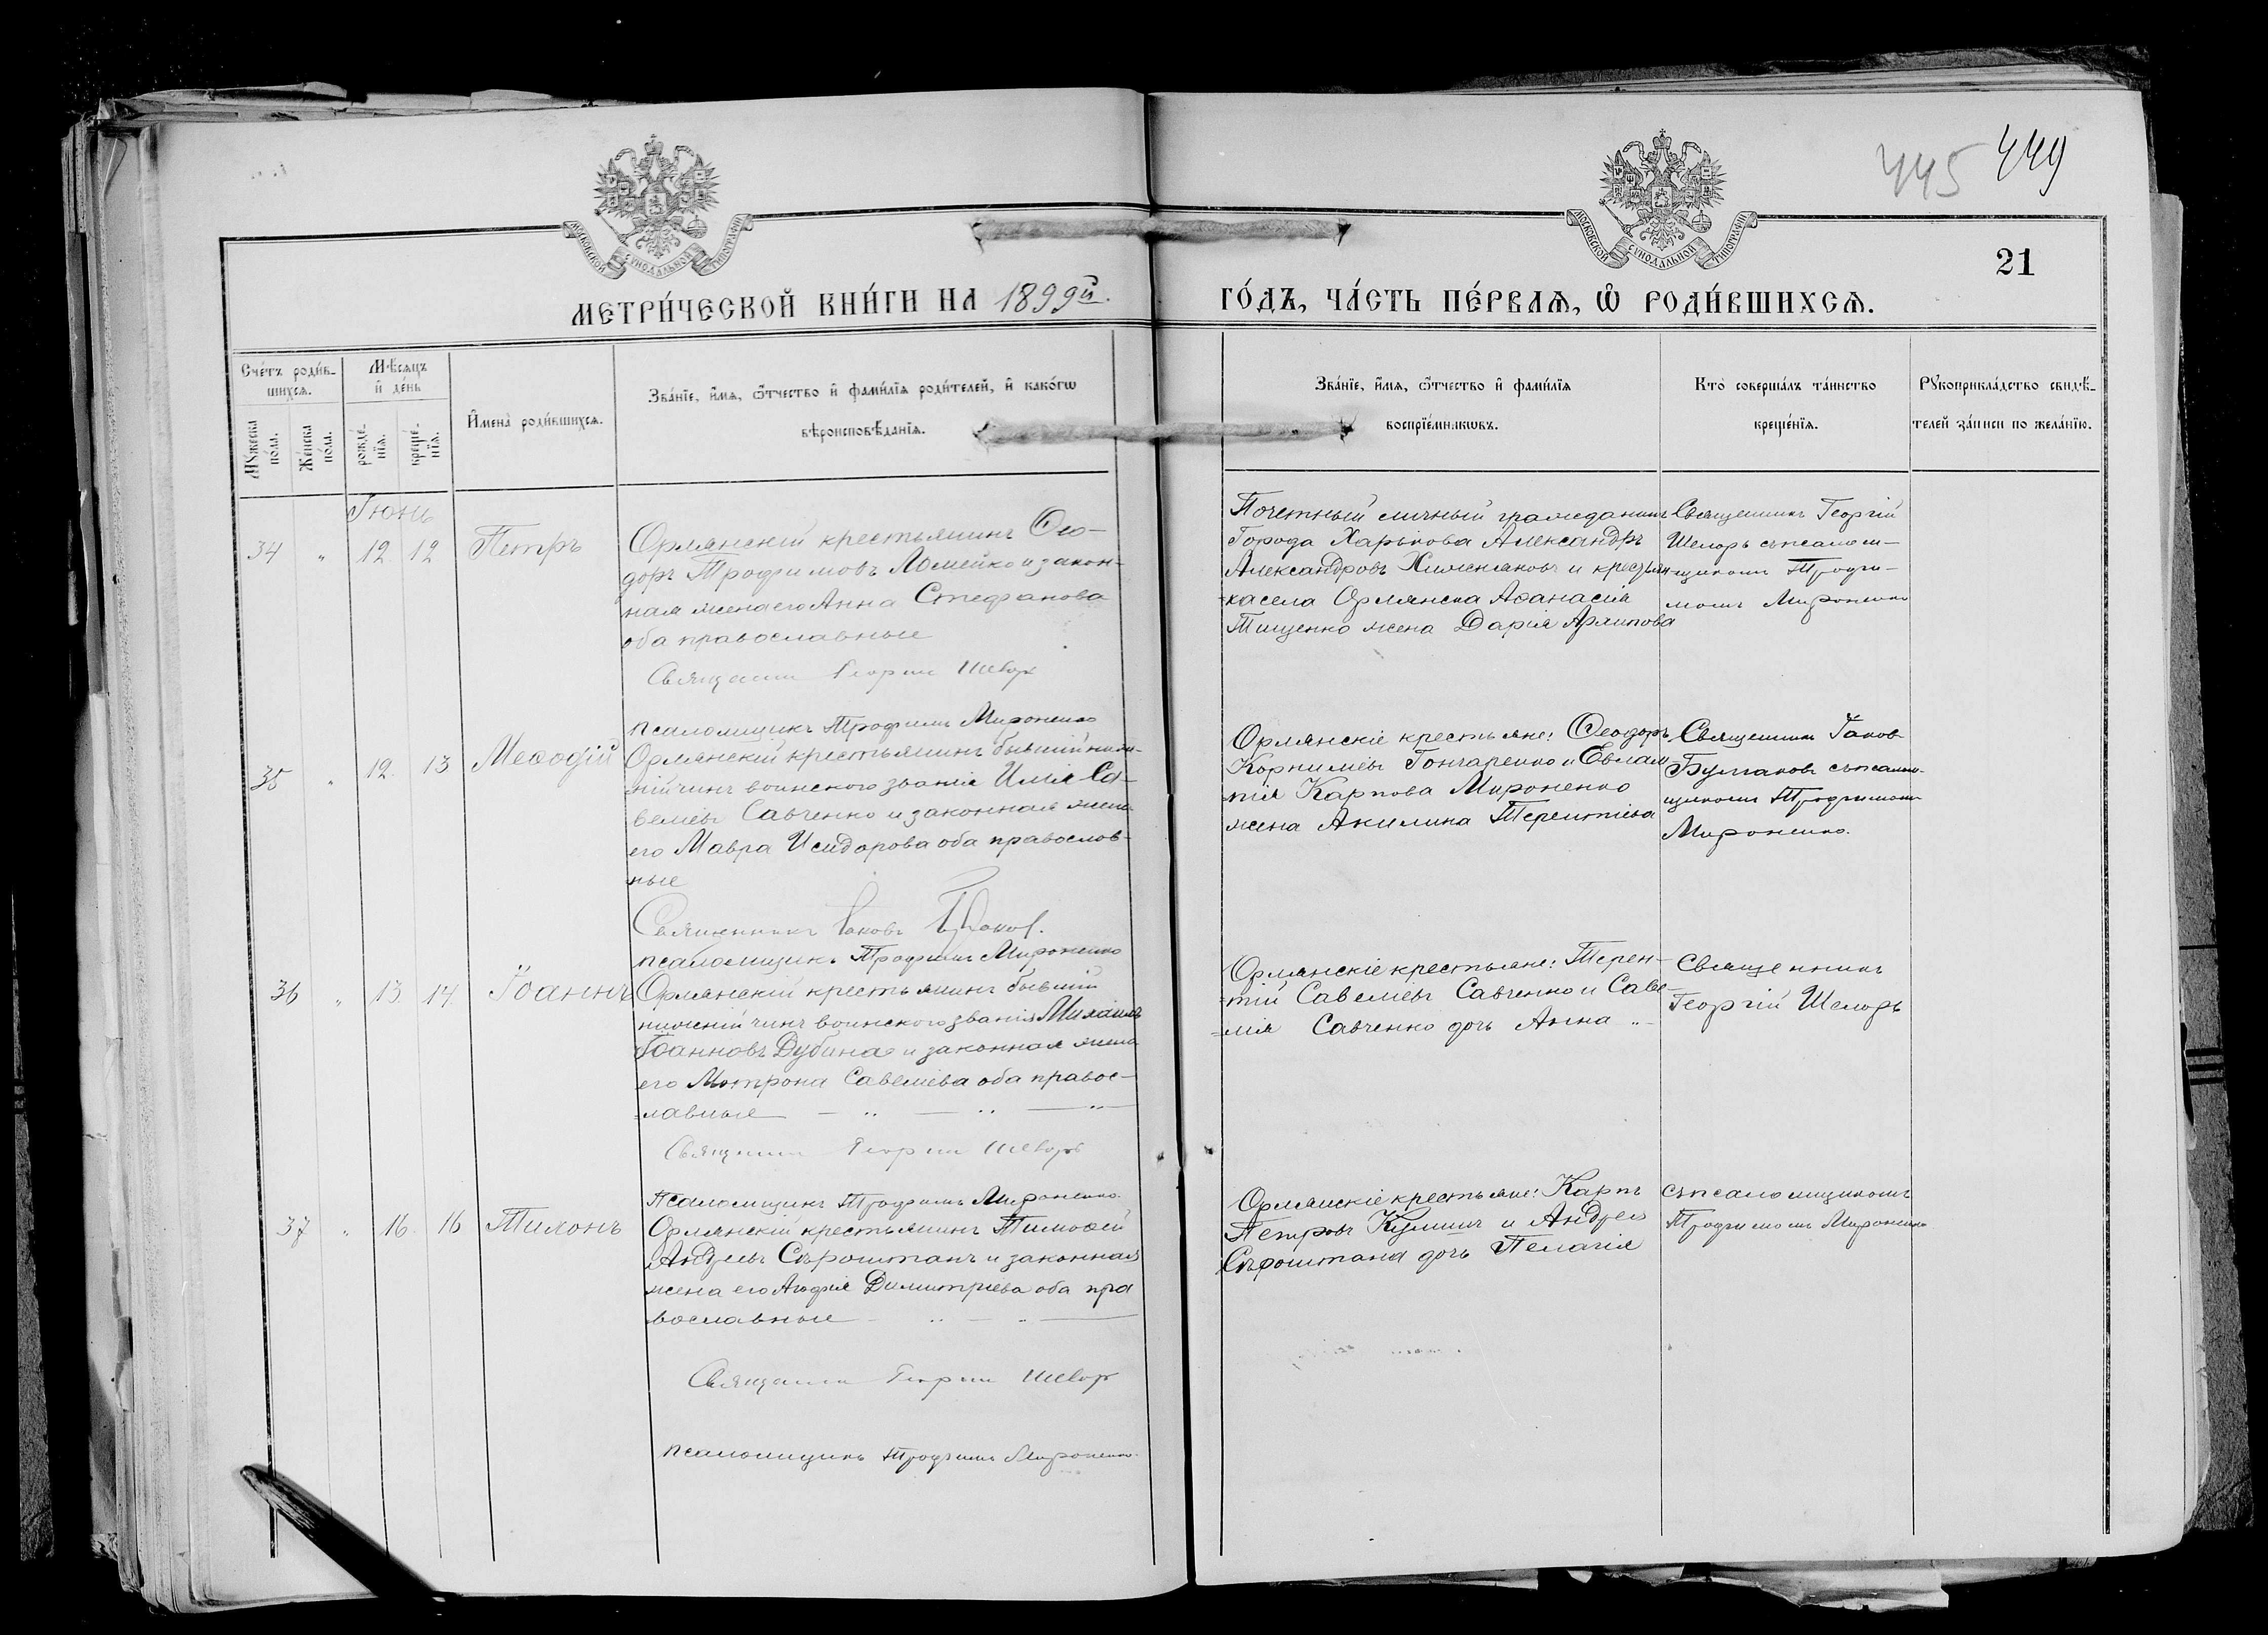 445 449
МОСКОВСКОЙ СѴНОДАЛЬНОЙ ТИПОГРАФІИ
МОСКОВСКОЙ СѴНОДАЛЬНОЙ ТИПОГРАФІИ
21
МЕТРИ́ЧЕСКОЙ КНИ́ГИ НА 1899й.
ГО́ДЪ, ЧА́СТЬ ПЕ́РВАѦ, Ѽ РОДИ́ВШИХСѦ.
Сче́тъ роди́в-
шихсѧ.
Му́жеска по́ла.
Же́нска по́ла.
Мѣ́сѧцъ
и҆ де́нь
рожде́-
нїѧ.
креще́-
нїѧ.
И҆мена̀ роди́вшихсѧ.
Зва́нїе, и҆́мѧ, ѻ҆́тчество и҆ фами́лїѧ роди́телей, и҆ како́гѡ
вѣроисповѣ́данїѧ.
Зва́нїе, и҆́мѧ, ѻ҆́тчество и҆ фами́лїѧ
воспрїе́мникѡвъ.
Кто̀ соверша́лъ та́инство
креще́нїѧ.
Рꙋкоприкла́дство свидѣ́-
телей за́писи по жела́нїю.
Іюнь
34 " 12 12 Петръ
Орлянскій крестьянинъ Ѳео-
доръ Трофимовъ Ломейко и закон-
ная жена его Анна Стефанова
оба православные
Священникъ Георгій Шеворъ
псаломщикъ Трофимъ Мироненко
Почетный личный гражданинъ
Города Харькова Александръ
Александровъ Хижняковъ и крестьян-
ка села Орлянска Аѳанасія
Тищенко жена Дарія Архипова
Священникъ Георгій
Шеворъ съ псалом-
щикомъ Трофи-
момъ Мироненко
35 " 12 13 Меѳодій
Орлянскій крестьянинъ бывшій ниж-
ній чинъ воинского званія Илія Са-
веліевъ Савченко и законная жена
его Мавра Исидорова оба православ-
ные
Священникъ Іаковъ
псаломщикъ Трофимъ Мироненко
Орлянскіе крестьяне: Ѳеодоръ
Корниліевъ Гончаренко и Евлам-
пія Карпова Мироненко
жена Акилина Терентіева
Священникъ Іаковъ
съ псалом-
щикомъ Трофимомъ
Мироненко.
36 " 13 14 Іоаннъ
Орлянскій крестьянинъ бывшій
нижній чинъ воинского званія Михаилъ
Іоанновъ Дубина и законная жена
его Мотрона Савеліева оба право-
славные
Священникъ Георгій Шеворъ
Псаломщикъ Трофимъ Мироненко
Орлянскіе крестьяне: Терен-
тій Савеліевъ Савченко и Саве-
лія Савченко дочь Анна
Священникъ
Георгій Шеворъ
37 " 16 16 Тихонъ
Орлянскій крестьянинъ Тимоѳей
Андреевъ Сѣроштанъ и законная
жена его Агафія Димитріева оба пра
вославные
Священникъ Георгій Шеворъ
псаломщикъ Трофимъ Мироненко
Орлянскіе крестьяне: Карпъ
Петровъ Кулишъ и Андрея
Сѣроштана дочь Пелагія
съ псаломщикомъ
Трофимомъ Мироненко